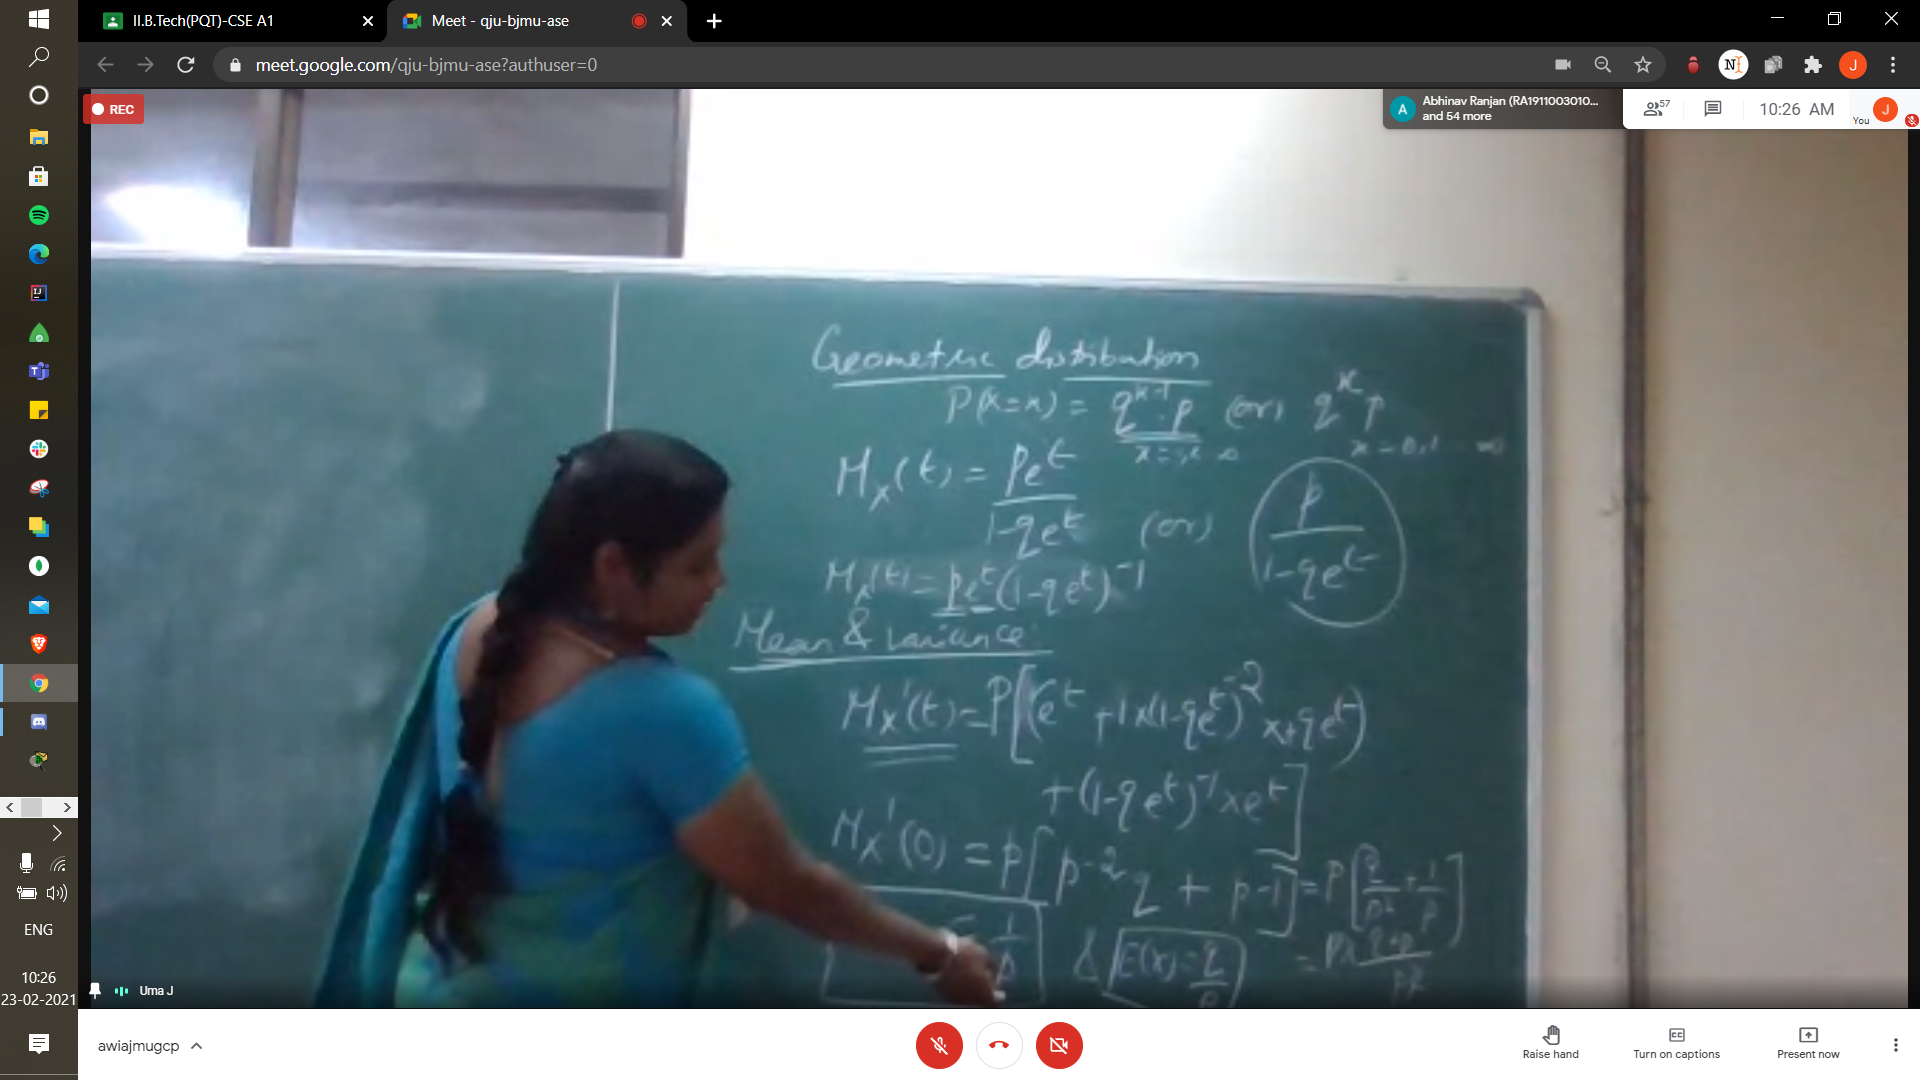 II.B.Tech(PQT)-CSE A1
Meet - qju-bjmu-ase
meet.google.com/qju-bjmu-ase?authuser=0
REC
Abhinav Ranjan (RA1911003010...
and 54 more
57
10:26 AM
You
Geometric distribution
P(X=x) = q^(x-1) . p (or) q^x p
x = 0,1 --- ∞
M_X(t) = pe^t / (1-qe^t) (or) p / (1-qe^t)
M_X(t) = pe^t (1-qe^t)^-1
Mean & variance
M_X'(t) = P[(e^t + 1 x (1-qe^t)^-2 x + qe^t)
+ (1-qe^t)^-1 x e^t]
M_X'(0) = p[p^-2 q + p^-1] = P[q/p^2 + 1/p]
= 1/p & E(X) = q/p
Uma J
ENG
10:26
23-02-2021
awiajmugcp
Raise hand
Turn on captions
Present now